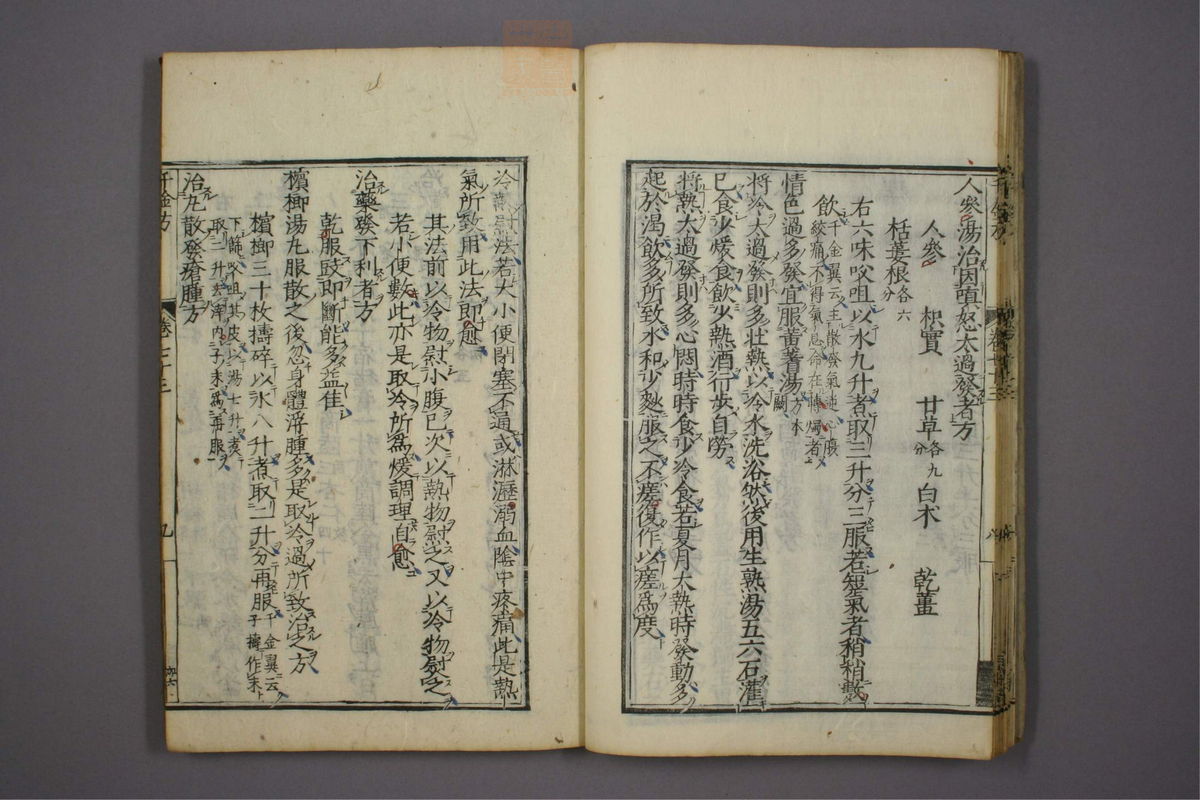 人參湯治因嗔怒太過發者方
人參　枳實　甘草各九分　白术　乾薑
栝蔞根各六分
右六味㕮咀以水九升煮取三升分三服若短氣者稍稍數
飲千金翼云主散發氣逆心腹絞痛不得氣息命在轉燭者
情色過多發宜服黃耆湯方本闕
將冷太過發則多壯熱以冷水洗浴然後用生熟湯五六石灌
已食少煖食飲少熱酒行步自勞
將熱太過發則多心悶時時食少冷食若夏月大熱時發動多
起於渴飲多所致水和少麨服之不瘥復作以瘥爲度
冷熱熨法若大小便閉塞不通或淋瀝溺血陰中疼痛此是熱
氣所致用此法即愈
其法前以冷物熨小腹已次以熱物熨之又以冷物熨之
若小便數此亦是取冷所爲煖調理自愈
治藥發下利者方
乾服豉即斷能多益佳
檳榔湯丸服散之後忽身體浮腫多是取冷過所致治之方
檳榔三十枚擣碎以水八升煮取二升分再服千金翼云子擣作末
下篩㕮咀其皮以湯七升煮取二升半滓内子末爲再服
治丸散發瘡腫方
千金方　卷二十三　九